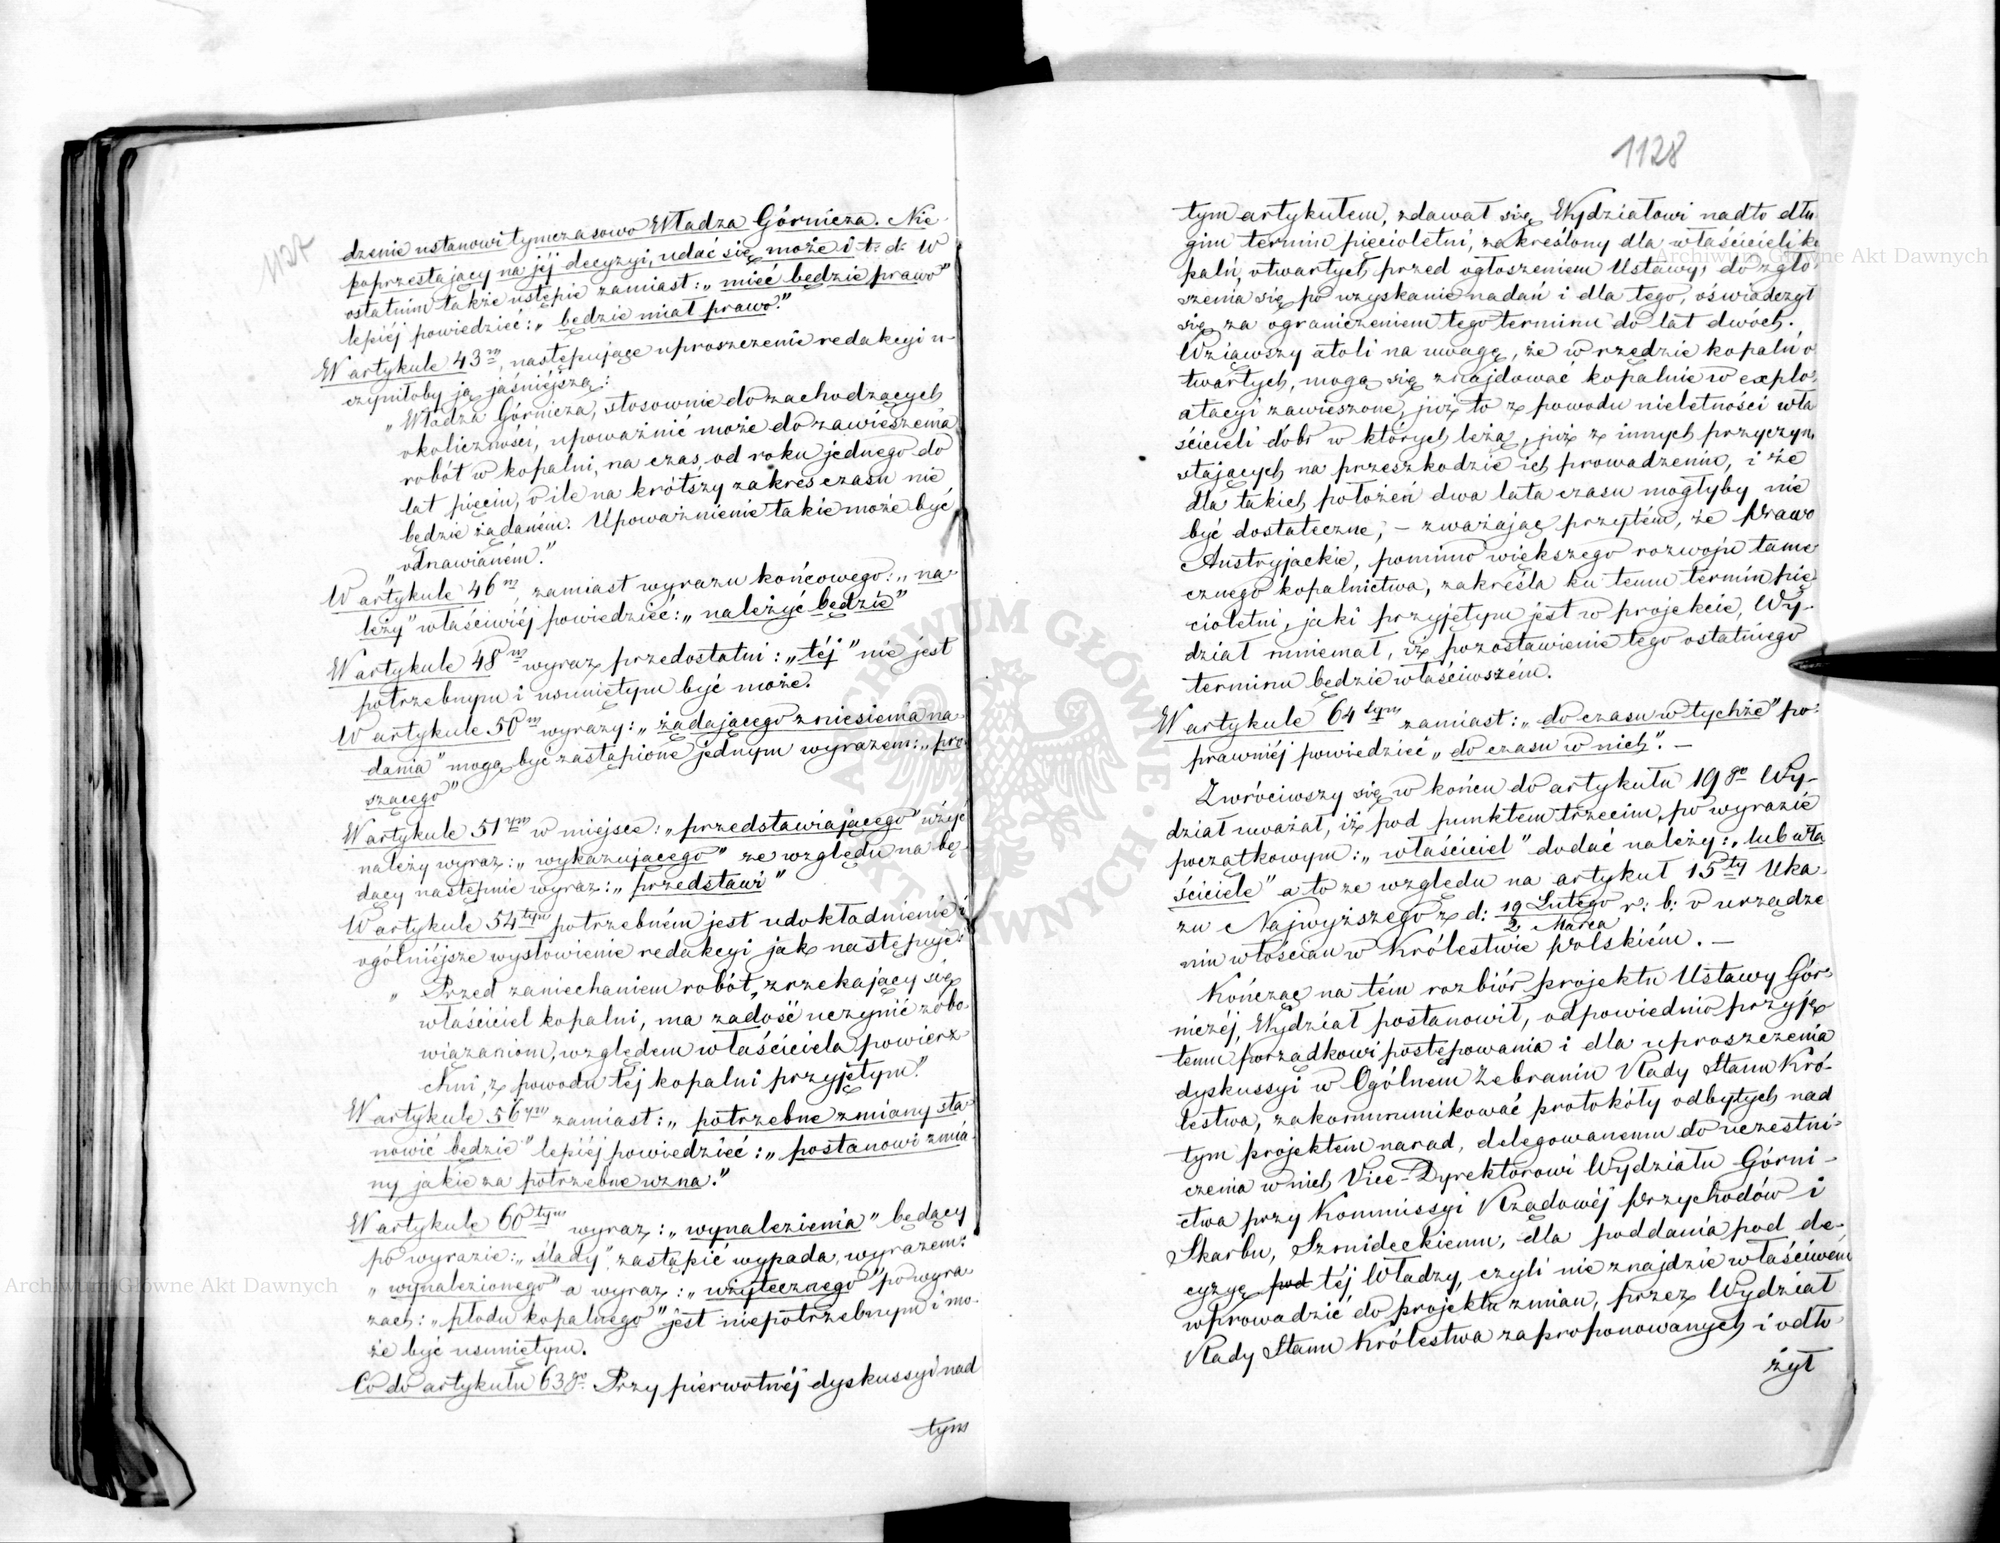 1127
dzenie ustanowi tymczasowo Władza Górnicza. Nie
poprzestający na jéj decyzyi, udać się może i t: d: W
ostatnim także ustępie zamiast: „mieć będzie prawo”
lepiéj powiedzieć: „będzie miał prawo.”
W artykule 43m, następujące uproszczenie redakcyi u-
czyniłoby ją jaśniejszą:
„Władza Górnicza, stosownie do zachodzących
okoliczności, upoważnić może do zawieszenia
robót w kopalni, na czas od roku jednego do
lat pięciu, o ile na krótszy zakres czasu nie
będzie żądaném. Upoważnienie takie może być
odnawianém.”
W artykule 46m, zamiast wyrazu końcowego: „na-
leży” właściwiéj powiedzieć: „należyć będzie”
W artykule 48m wyraz przedostatni: „téj” nie jest
potrzebnym i usuniętym być może.
W artykule 50m wyrazy: „żądającego zniesienia na-
dania” mogą być zastąpione jednym wyrazem: „pro-
szącego”
W artykule 51ym w miejsce: „przedstawiającego” użyć
należy wyraz: „wykazującego” ze względu na bę-
dący następnie wyraz: „przedstawi”
W artykule 54tym potrzebném jest udokładnienie i
ogólniejsze wysłowienie redakcyi jak następuje:
„Przed zaniechaniem robót, zrzekający się
właściciel kopalni, ma zadość uczynić zobo-
wiązaniom, względem właściciela powierz-
chni, z powodu téj kopalni przyjętym.”
W artykule 56ym zamiast: „potrzebne zmiany sta-
nowić będzie” lepiéj powiedzieć: „postanowi zmia-
ny jakie za potrzebne uzna.”
W artykule 60tym wyraz: „wynalezienia” będący
po wyrazie: „ślady”, zastąpić wypada, wyrazem:
„wynalezionego” a wyraz: „użytecznego” po wyra-
zach: „płodu kopalnego” jest niepotrzebnym i mo-
że być usuniętym.
Co do artykułu 63go. Przy pierwotnéj dyskussyi nad
tym
1128
tym artykułem, zdawał się Wydziałowi nadto dłu-
gim termin pięcioletni, zakreślony dla właścicieli ko-
palń, otwartych przed ogłoszeniem Ustawy, do zgło-
szenia się po uzyskanie nadań i dla tego, oświadczył
się za ograniczeniem tego terminu do lat dwóch.
Wziąwszy atoli na uwagę, że w rzędzie kopalń o-
twartych, mogą się znajdować kopalnie w explo-
atacyi zawieszone, już to z powodu nieletności wła-
ścicieli dóbr w których leżą, już z innych przyczyn
stających na przeszkodzie ich prowadzeniu, i że
dla takich położeń dwa lata czasu mogłyby nie
być dostateczne; – zważając przytém, że prawo
Austryjackie, pomimo większego rozwoju tame-
cznego kopalnictwa, zakreśla ku temu termin pię-
cioletni, jaki przyjętym jest w projekcie, Wy-
dział mniemał, iż pozostawienie tego ostatniego
terminu będzie właściwszém.
W artykule 64tym zamiast: „do czasu w tychże” po-
prawniéj powiedzieć „do czasu w nich”. –
Zwróciwszy się w końcu do artykułu 19go Wy-
dział uważał, iż pod punktem trzecim, po wyrazie
początkowym: „właściciel” dodać należy: „lub wła-
ściciele” a to ze względu na artykuł 15ty Uka-
zu Najwyższego z d: 19 Lutego/2 Marca r: b: o urządze-
niu włościan w Królestwie Polskiém. –
Kończąc na tém rozbiór projektu Ustawy Gór-
niczéj, Wydział postanowił, odpowiednio przyję-
temu porządkowi postępowania i dla uproszczenia
dyskussyi w Ogólnem Zebraniu Rady Stanu Kró-
lestwa, zakommunikować protokóły odbytych nad
tym projektem narad, delegowanemu do uczestni-
czenia w nich Vice-Dyrektorowi Wydziału Górni-
ctwa przy Kommissyi Rządowéj Przychodów i
Skarbu, Szmideckiemu, dla poddania pod de-
cyzyę pod téj Władzy, czyli nie znajdzie właściwém
wprowadzić do projektu zmian, przez Wydział
Rady Stanu Królestwa zaproponowanych i odło-
żył
Archiwum Główne Akt Dawnych
Archiwum Główne Akt Dawnych
ARCHIWUM GŁÓWNE AKT DAWNYCH